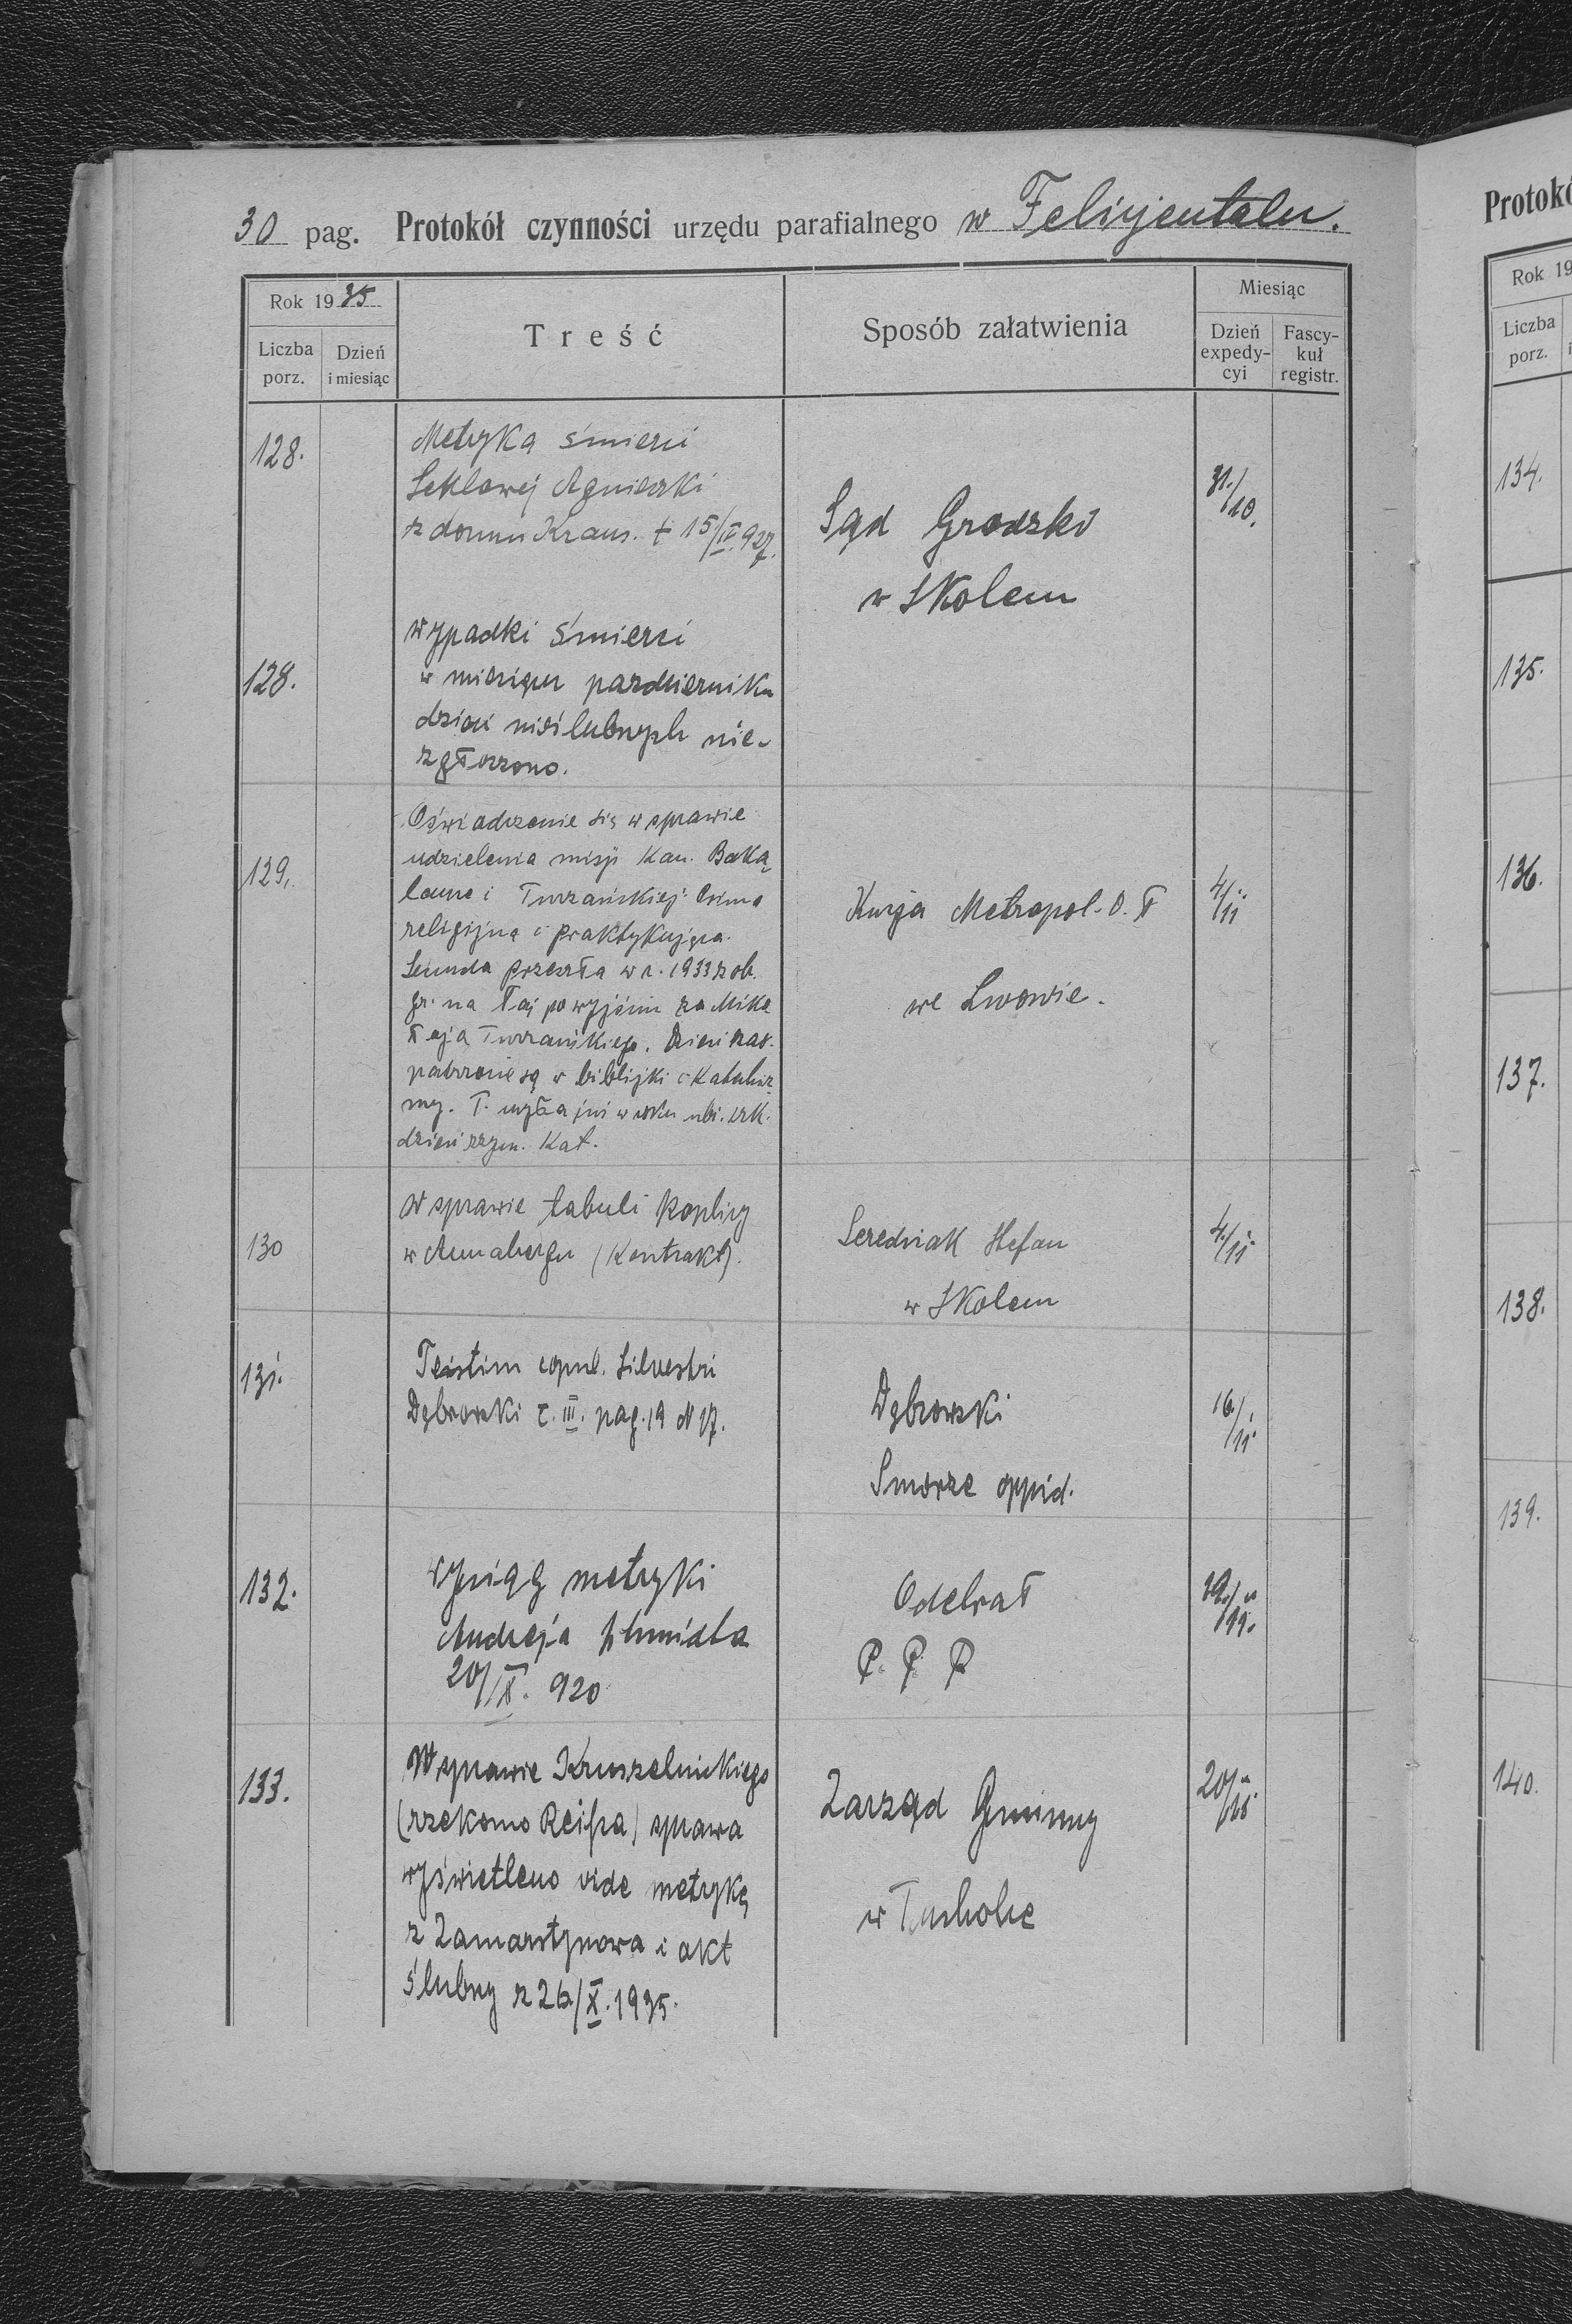 30 pag. Protokół czynności urzędu parafialnego w Felicjentalu.
Rok 1935
Liczba porz.
Dzień i miesiąc
Treść
Sposób załatwienia
Miesiąc
Dzień expedycyi
Fascykuł registr.
128.
Metryka śmierci
Seklowej Agnieszki
z domu Kraus. † 15/IV.927.
Sąd Grodzki
w Skolem
31./10.
128.
wypadki śmierci
w miesiącu październiku
dzieci nieślubnych nie-
zgłoszono.
129.
Oświadczenie się w sprawie
udzielenia misji kan. Baka
laure i Turzańskiej
religijna i praktykująca.
przeszła w r. 1933 z ob.
gr. na łać po wyjściu za Mika
łaja Turzańskiego. Dzieci zao-
patrzone są w biblijki i katechiz
my. T. uczyła już w roku ub. szk.
dzieci rzym. kat.
Kurja Metropol. O. Ł
we Lwowie.
4/11
130
W sprawie tabuli kaplicy
w Annabergu (Kontrakt).
Seredniak Stefan
w Skolem
4./11
131.
Testim copul. Silvestri
Dąbrowski t. III. pag. 19 N 17.
Dąbrowski
Smorze oppid.
16/11
132.
wyciąg metryki
Andrzeja Schmidta
20/IX. 920
Odebrał
P. P. P
19./11.
133.
W sprawie Kruszelnickiego
(rzekomo Reifra) sprawa
wyświetleno vide metrykę
z Zamarstynowa i akt
ślubny z 26/X. 1935.
Zarząd Gminny
w Tucholce
20/11
Protokó
Rok 19
Liczba porz.
i
134.
135.
136.
137.
138.
139.
140.